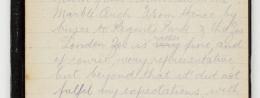 Marble Arch From thence by
buses to Regents Park & the Zoo
London Zoo is rather very fine, and
of course, very representative
but beyond that it did not
fulfil my expectations with